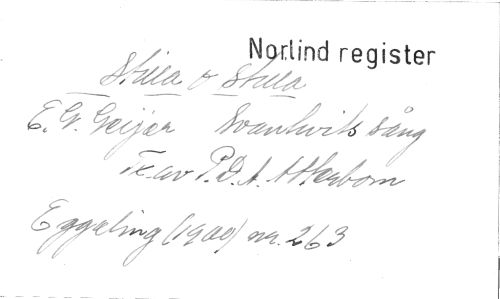 Norlind register
Stilla o Stilla
E. G. Geijer Svanhvits sång
Tx. av P.D.A. Atterbom
Eggeling (1900) nr. 263